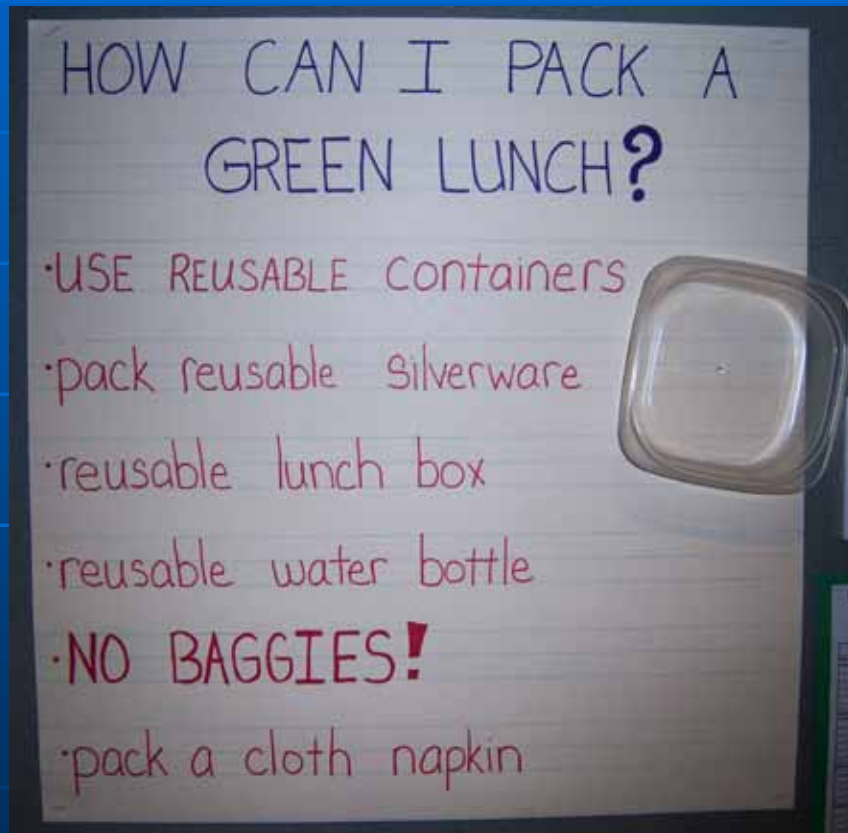 HOW CAN I PACK A
GREEN LUNCH?
·USE REUSABLE containers
·pack reusable silverware
·reusable lunch box
·reusable water bottle
·NO BAGGIES!
·pack a cloth napkin